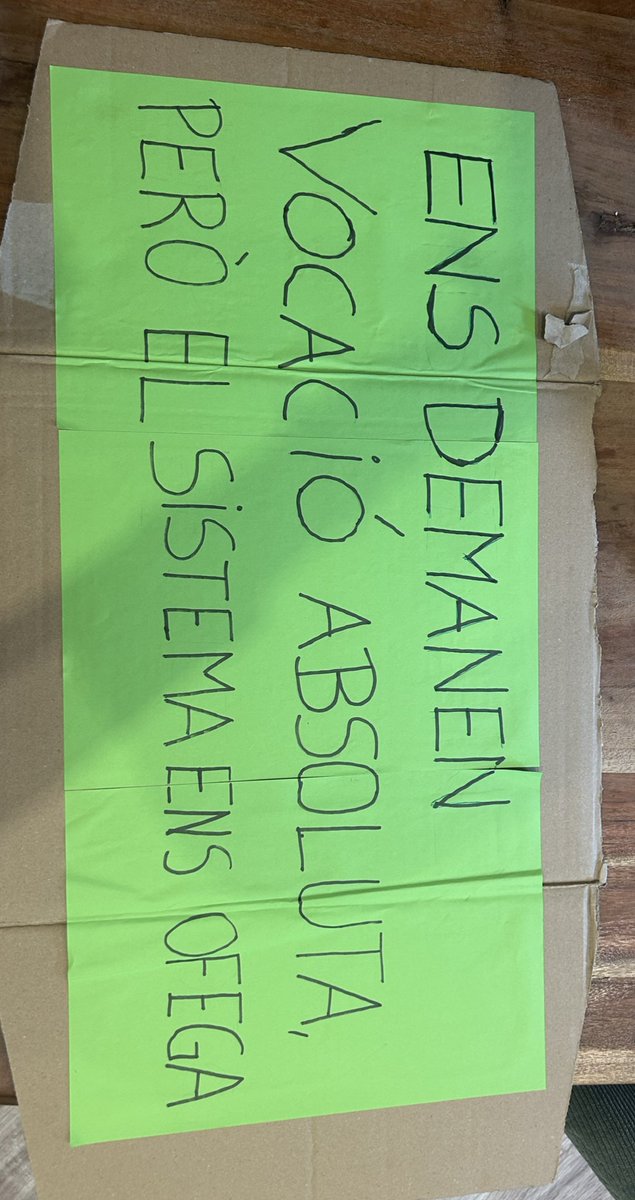 ENS DEMANEN
VOCACIÓ ABSOLUTA,
PERÒ EL SISTEMA ENS OFEGA